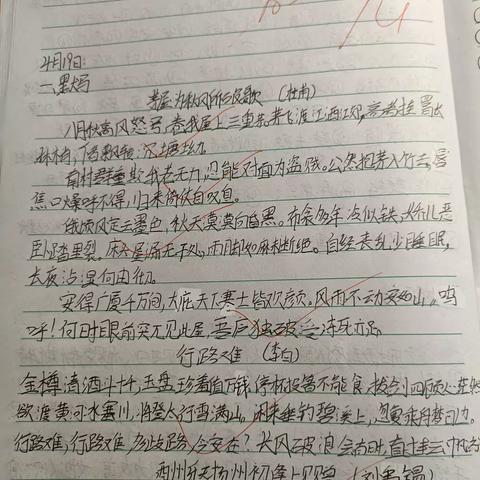 4月19日:
一、默写
茅屋为秋风所破歌 (杜甫)
八月秋高风怒号,卷我屋上三重茅。茅飞渡江洒江郊,高者挂罥长
林梢,下者飘转沉塘坳
南村群童欺我老无力,忍能对面为盗贼。公然抱茅入竹去,唇
焦口燥呼不得,归来倚仗自叹息。
俄顷风定云墨色,秋天漠漠向昏黑。布衾多年冷似铁,娇儿恶
卧踏里裂。床头屋漏无干处,雨脚如麻未断绝。自经丧乱少睡眠,
长夜沾湿何由彻。
安得广厦千万间,大庇天下寒士皆欢颜。风雨不动安如山。呜
呼!何时眼前突兀见此屋,吾庐独破受冻死亦足
行路难 (李白)
金樽清酒斗十千,玉盘珍羞直万钱。停杯投箸不能食,拔剑四顾心茫然
欲渡黄河冰塞川,将登太行雪满山。闲来垂钓碧溪上,忽复乘舟梦日边。
行路难,行路难,多歧路,今安在?长风破浪会有时,直挂云帆济
酬乐天扬州初逢席上见赠 (刘禹锡)